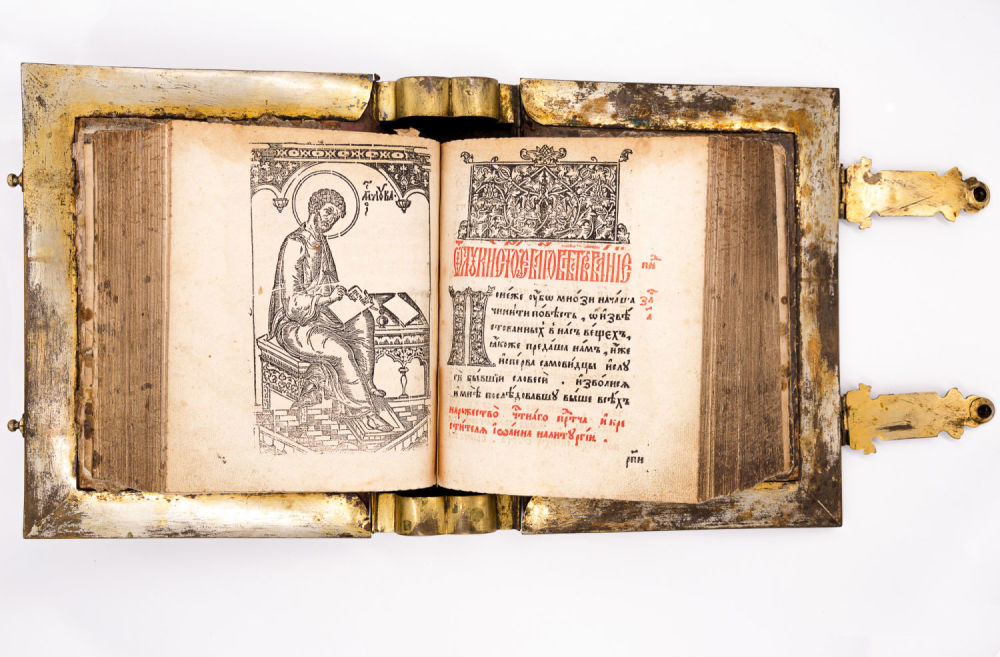 ЛꙊКА
Ѿ ЛꙊКИ СТ҃ОЕ БЛГОВѢСТВОВАНЇЕ
Понеже ᲂу҆бѡ мнози начаша
чинити повѣсть, ѡ и҆звѣ
стованныхъ в насъ вещехъ,
ꙗкоже предаша намъ, и҆же
и҆сперва самовидцы и҆слꙋ
ги бывшїи словеси. и҆зволися
и҆мнѣ послѣдовавшꙋ выше всѣхъ
нарожество чⷭ҇тнаго прⷣтча и҆кре
стителя і҆ѡанна налитꙋргїи.
рп҃и